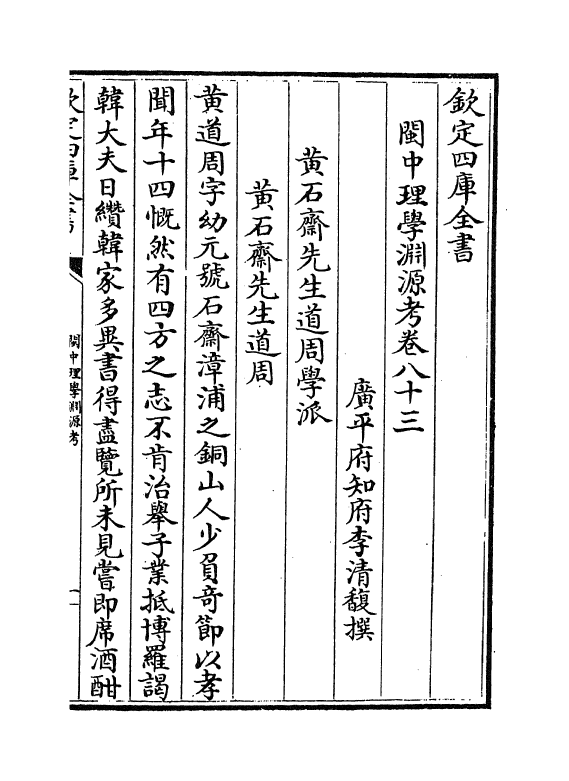 欽定四庫全書
閩中理學淵源考卷八十三
廣平府知府李清馥撰
黃石齋先生道周學派
黃石齋先生道周
黃道周字幼元號石齋漳浦之銅山人少負竒節以孝
聞年十四慨然有四方之志不肯治舉子業抵博羅謁
韓大夫日纘韓家多異書得盡覽所未見嘗即席酒酣
欽定四庫全書
閩中理學淵源考
一